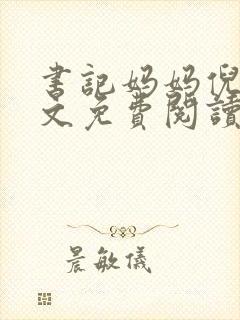 書記妈妈倪
文免費閱讀
晨敏儀